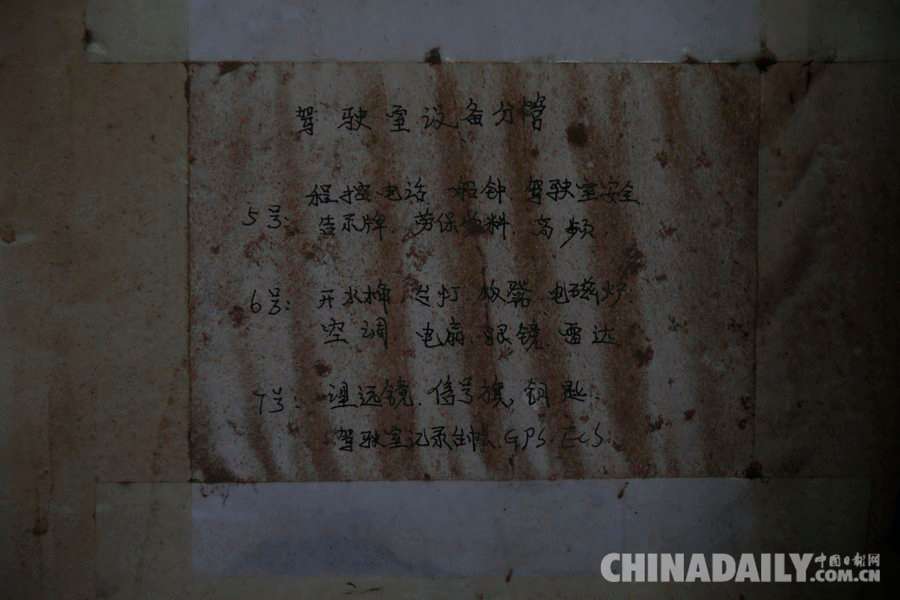 驾驶室设备分管
5号: 程控电话 船钟 驾驶室安全
告示牌 劳保资料 高频
6号: 开水桶 台灯 电磁炉
空调 电扇 眼镜 雷达
7号: 望远镜. 信号旗 钥匙.
驾驶室记录 GPS. ECS.
CHINADAILY 中国日报网
.COM.CN